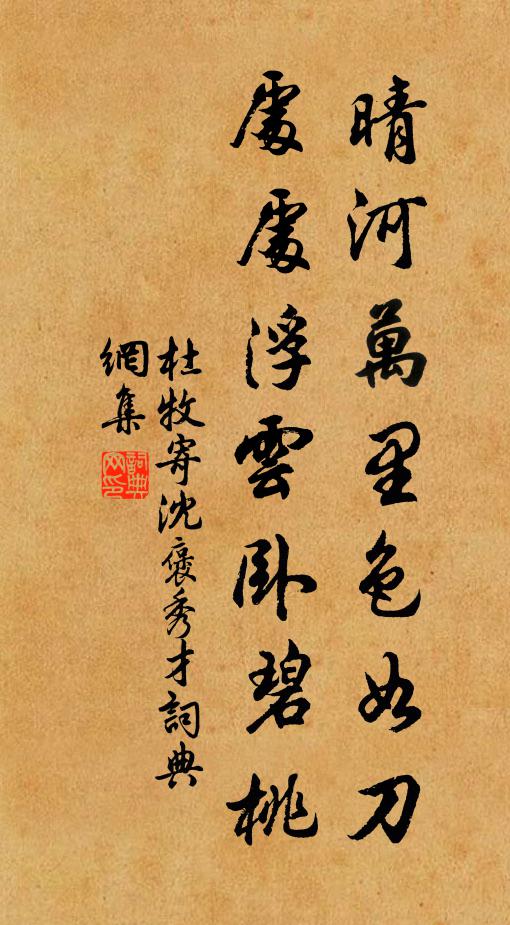 晴河萬里色如刀
處處浮雲臥碧桃
杜牧寄沈褒秀才詞典
網集
詞典
网印